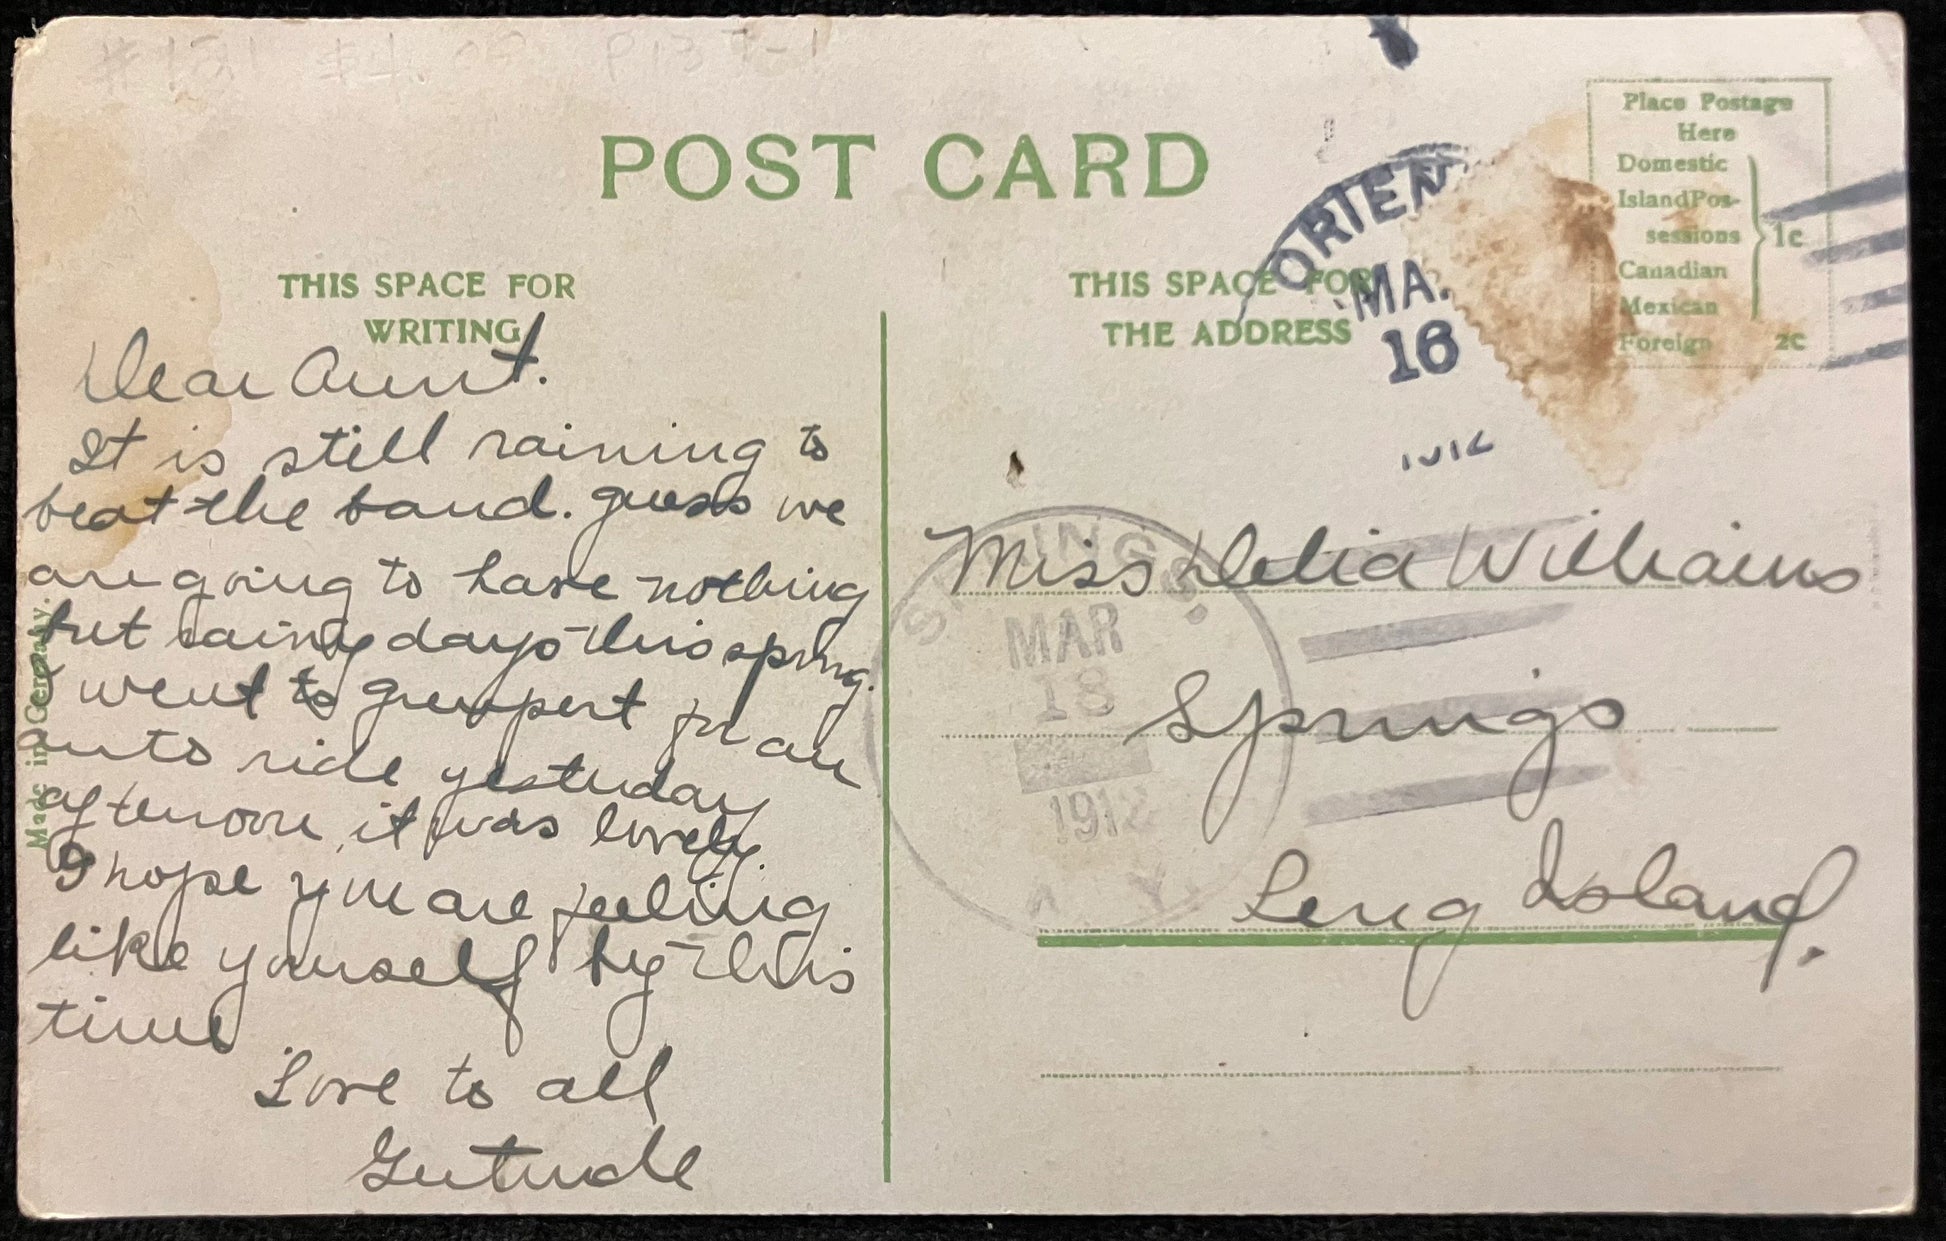 POST CARD
Place Postage
Here
Domestic
Island Pos-
sessions
1c
Canadian
Mexican
Foreign 2c
ORIEN
MA.
16
THIS SPACE FOR
WRITING
Dear Aunt.
It is still raining to
beat the band. guess we
are going to have nothing
but rainy days this spring.
I went to greenport for an
auto ride yesterday
afternoon, it was lovely.
I hope you are feeling
like yourself by this
time
Love to all
Gertrude
Made in Germany.
THIS SPACE FOR
THE ADDRESS
SPRINGS.
MAR
18
1912
N. Y.
Miss Delia Williams
Springs
Long Island.